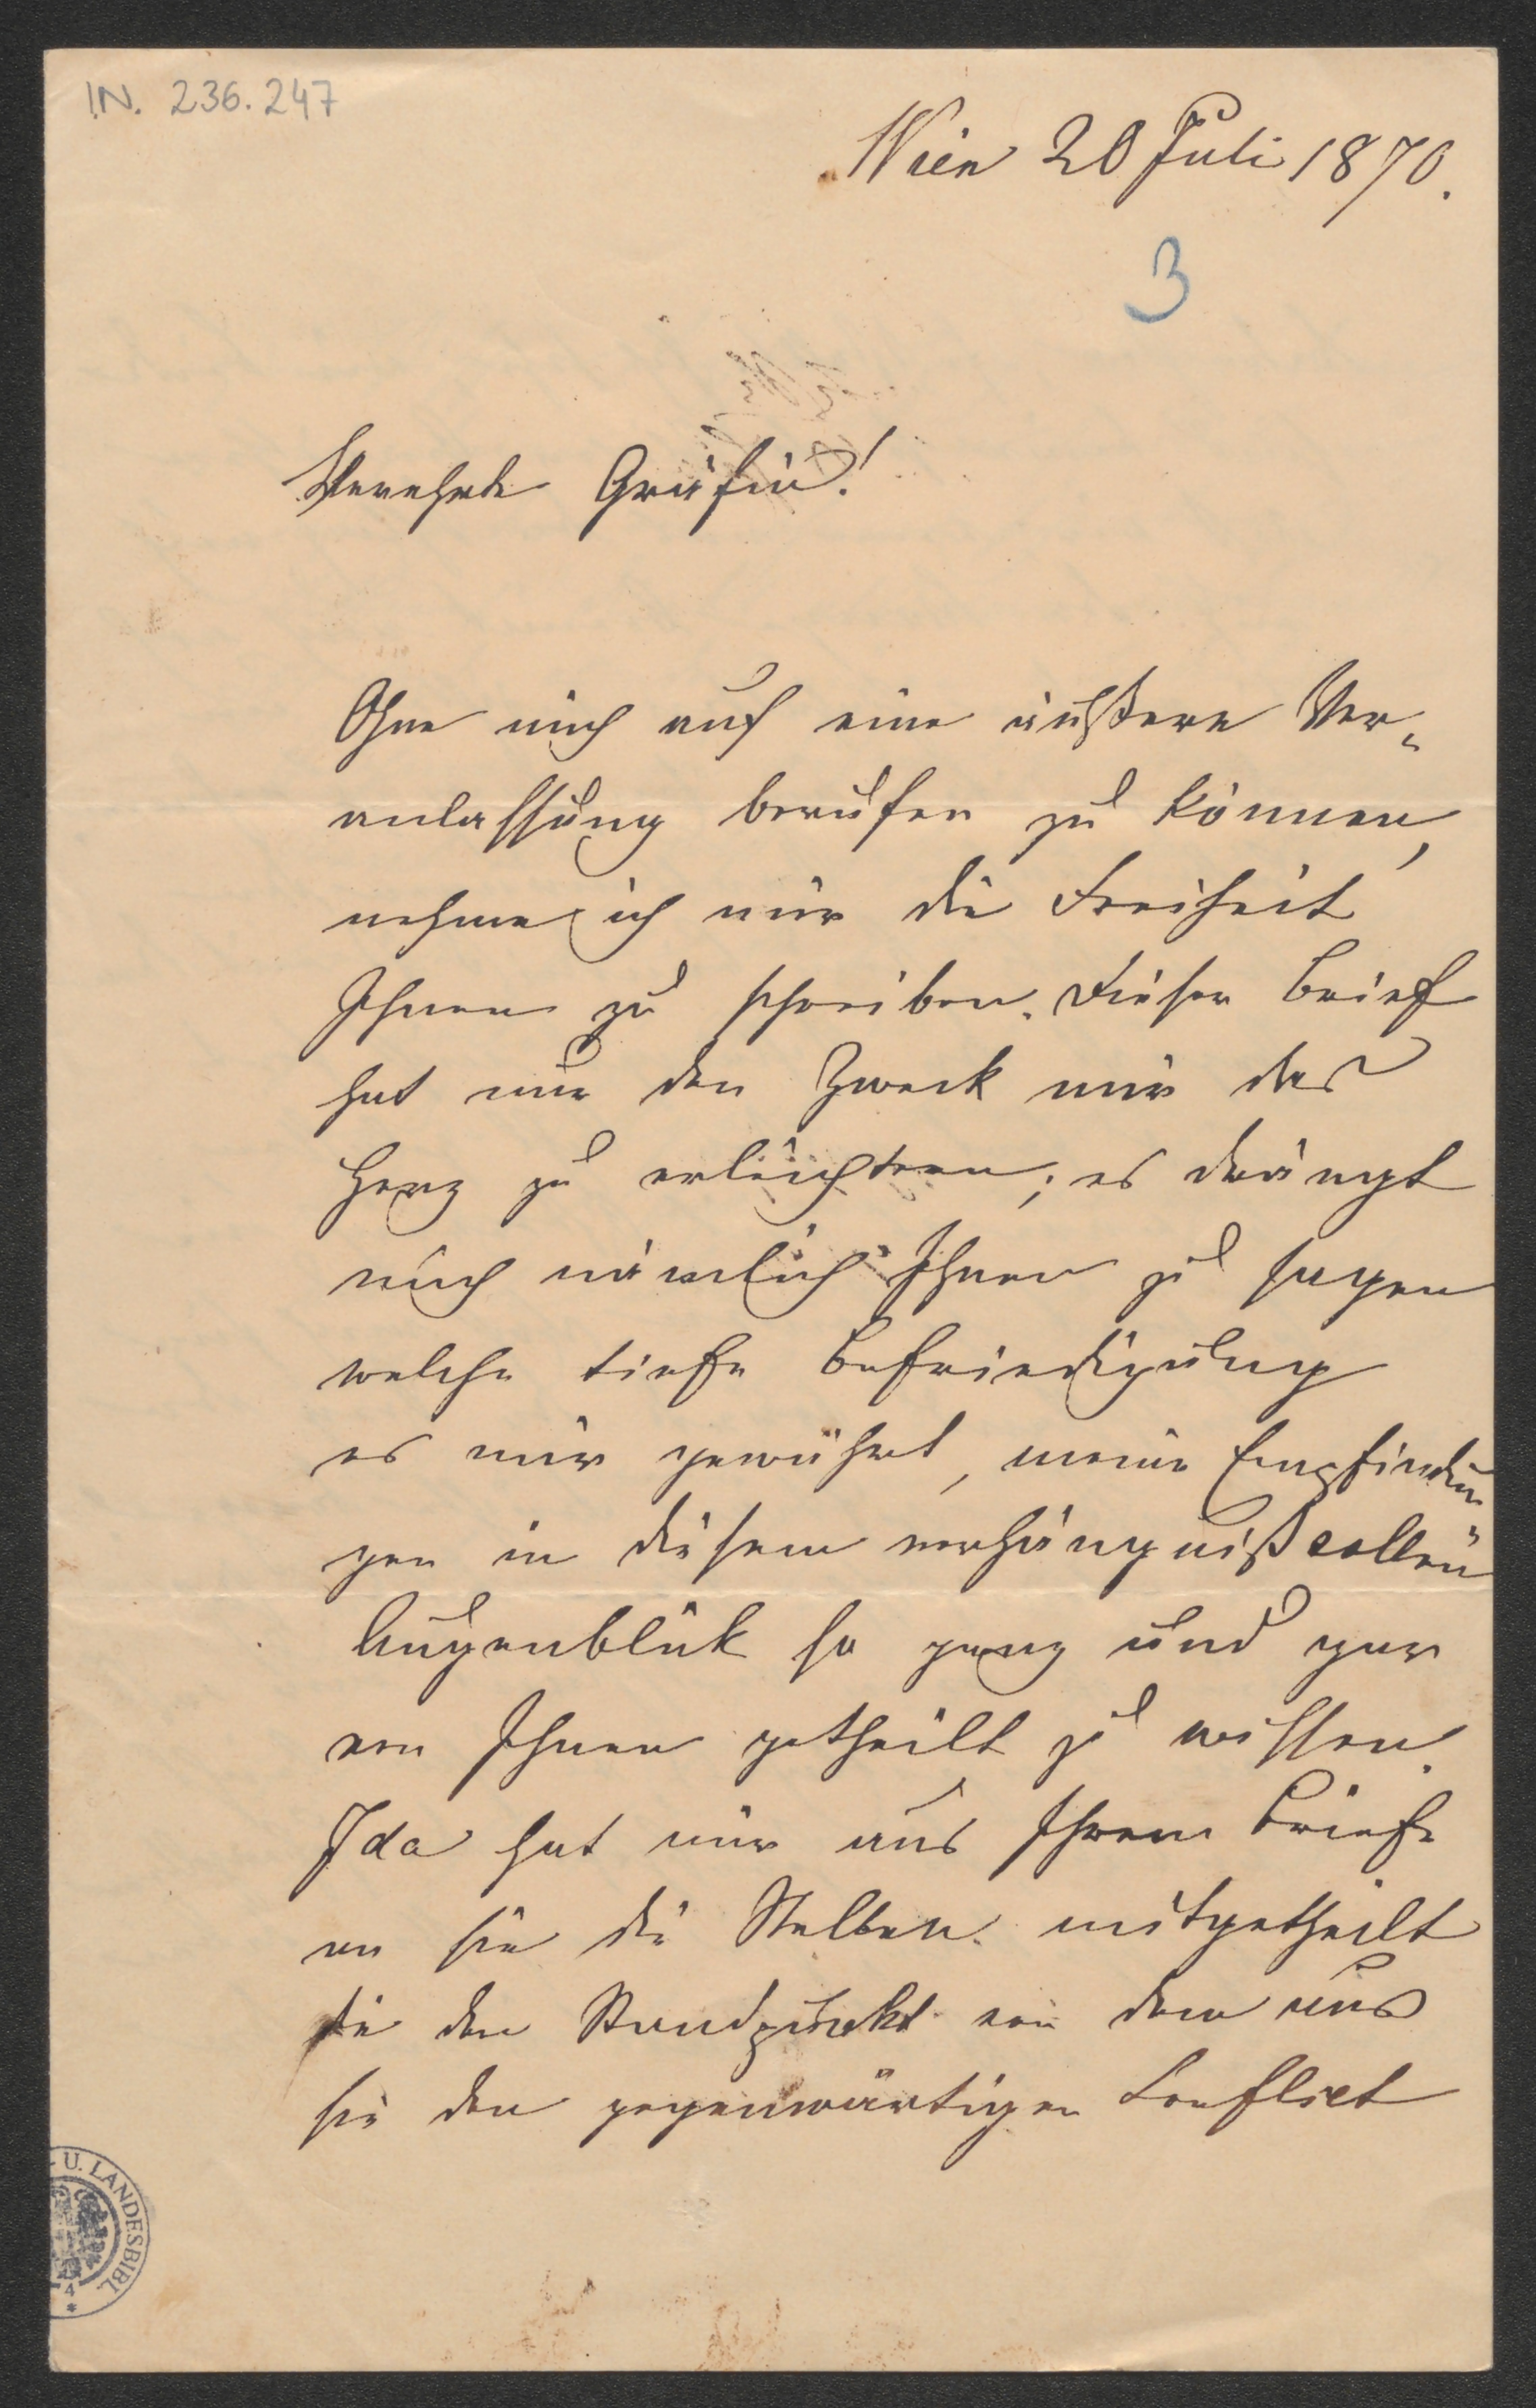 IN. 236.247
Wien 20 Juli 1870.
3
Verehrte Gräfin!
Ohne mich auf eine äußere Ver-
anlassung berufen zu können,
nehme ich mir die Freiheit
Ihnen zu schreiben. Dieser Brief
hat nur den Zweck mir das
Herz zu erleichtern; es drängt
mich nämlich Ihnen zu sagen
welche tiefe Befriedigung
es mir gewährt, meine Empfindun-
gen in diesem verhängnißvollen
Augenblik so ganz und gar
von Ihnen getheilt zu wissen.
Ida hat mir aus Ihrem Briefe
an sie die Stellen mitgetheilt
die den Standpunkt von dem aus
sie den gegenwärtigen Conflict
U. LANDESBIBL.
4
*